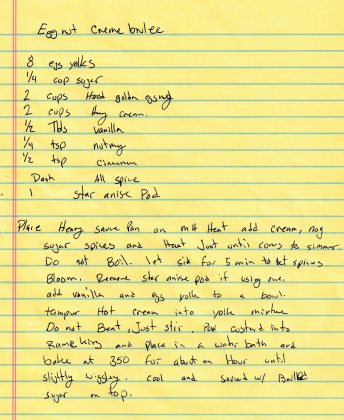 Egg nut creme brulee
8 egs yolks
1/4 cup sugar
2 cups Hood golden eggnog
2 cups Hvy cream.
1/2 Tbls vanilla
1/4 tsp nutmeg
1/2 tsp cinnamon
Dash All spice
1 Star anise Pod
Place Heavy sauce Pan on Heat add cream, nog
sugar spices and Heat Just until comes to simmer.
Do not Boil. let sit for 5 min to let spices
Bloom. Remove star anise pod if using one.
add vanilla and egs yolk to a bowl.
tempur Hot cream into yolk mixture
Do not Beat, Just stir. Pour custard into
Ramekins and place in a water bath and
bake at 350 for about an Hour until
slightly wiggley. cool and served w/
sugar on top.